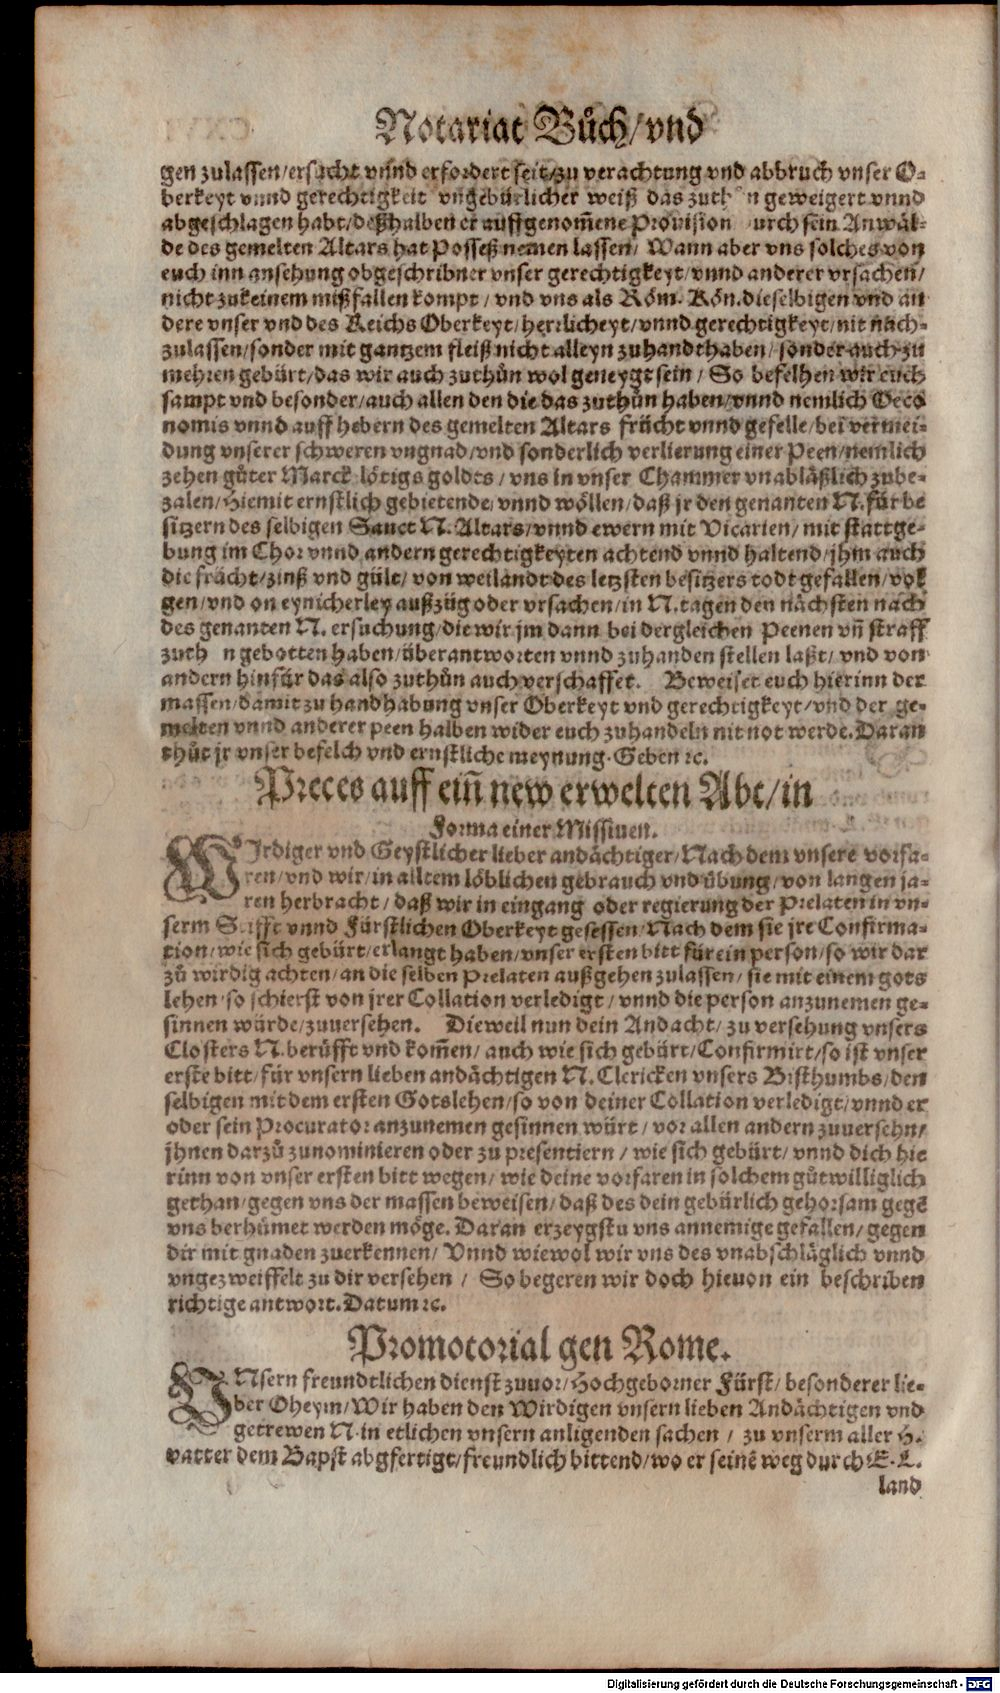 Notariat Bůch/ vnd
gen zulassen/ersucht vnnd erfordert seit/zu verachtung vnd abbruch vnser O-
berkeyt vnnd gerechtigkeit vngebürlicher weiß das zuth n geweigert vnnd
abgeschlagen habt/deßhalben er auffgenom̃ene Prouision urch sein Anwäl-
de des gemelten Altars hat Posseß nemen lassen/ Wann aber vns solches von
euch inn ansehung obgeschribner vnser gerechtigkeyt/vnnd anderer vrsachen/
nicht zu keinem mißfallen kompt/ vnd vns als Röm. Kön. dieselbigen vnd an
dere vnser vnd des Reichs Oberkeyt/herrlicheyt/vnnd gerechtigkeyt/nit nach-
zulassen/sonder mit gantzem fleiß nicht alleyn zuhandthaben/ sonder auch zu
mehren gebürt/das wir auch zuthůn wol geneygt sein/ So befelhen wir euch
sampt vnd besonder/auch allen den die das zuthůn haben/vnnd nemlich Oeco
nomis vnnd auff hebern des gemelten Altars frücht vnnd gefelle/bei vermei-
dung vnserer schweren vngnad/vnd sonderlich verlierung einer Peen/nemlich
zehen gůter Marck lötigs goldts/ vns in vnser Chammer vnabläßlich zube-
zalen/Hiemit ernstlich gebietende/vnnd wöllen/daß jr den genanten N. für be
sitzern des selbigen Sanct N. Altars/vnnd ewern mit Vicarien/ mit stattge-
bung im Chor vnnd andern gerechtigkeyten achtend vnnd haltend/jhm auch
die frücht/zinß vnd gült/ von weilandt des letzsten besitzers todt gefallen/vol
gen/vnd on eynicherley außzüg oder vrsachen/in N. tagen den nächsten nach
des genanten N. ersuchung/die wir jm dann bei dergleichen Peenen vñ straff
zuth n gebotten haben/überantworten vnnd zuhanden stellen laßt/ vnd von
andern hinfür das also zuthůn auch verschaffet. Beweiset euch hierinn der
massen/damit zu handhabung vnser Oberkeyt vnd gerechtigkeyt/vnd der ge-
melten vnnd anderer peen halben wider euch zuhandeln nit not werde. Daran
thůt jr vnser befelch vnd ernstliche meynung. Geben ꝛc.
Preces auff eiñ new erwelten Abt/in
Forma einer Missiuen.
WIrdiger vnd Geystlicher lieber andächtiger/ Nach dem vnsere vorfa-
ren/vnd wir/in alltem löblichen gebrauch vnd übung/von langen ja-
ren herbracht/ daß wir in eingang oder regierung der Prelaten in vn-
serm Stifft vnnd Fürstlichen Oberkeyt gesessen/Nach dem sie jre Confirma-
tion/wie sich gebürt/erlangt haben/vnser ersten bitt für ein person/so wir dar
zů wirdig achten/an die selben Prelaten außgehen zulassen/ sie mit einem gots
lehen so schierst von jrer Collation verledigt/ vnnd die person anzunemen ge-
sinnen würde/zuuersehen. Dieweil nun dein Andacht/ zu versehung vnsers
Closters N. berůfft vnd kom̃en/ auch wie sich gebürt/Confirmirt/so ist vnser
erste bitt/für vnsern lieben andächtigen N. Clericken vnsers Bisthumbs/den
selbigen mit dem ersten Gotslehen/so von deiner Collation verledigt/vnnd er
oder sein Procurator anzunemen gesinnen würt/ vor allen andern zuuersehn/
jhnen darzů zunominieren oder zu presentiern/ wie sich gebürt/ vnnd dich hie
rinn von vnser ersten bitt wegen/ wie deine vorfaren in solchem gůtwilliglich
gethan/gegen vns der massen beweisen/daß des dein gebürlich gehorsam gegẽ
vns berhümet werden möge. Daran erzeygstu vns annemige gefallen/gegen
dir mit gnaden zuerkennen/ Vnnd wiewol wir vns des vnabschläglich vnnd
vngezweiffelt zu dir versehen / So begeren wir doch hieuon ein beschriben
richtige antwort. Datum ꝛc.
Promotorial gen Rome.
VNsern freundtlichen dienst zuuor/Hochgeborner Fürst/besonderer lie-
ber Oheym/Wir haben den Wirdigen vnsern lieben Andächtigen vnd
getrewen N. in etlichen vnsern anligenden sachen / zu vnserm aller H.
vatter dem Bapst abgfertigt/freundlich bittend/wo er seinẽ weg durch E. L.
land
Digitalisierung gefördert durch die Deutsche Forschungsgemeinschaft - DFG